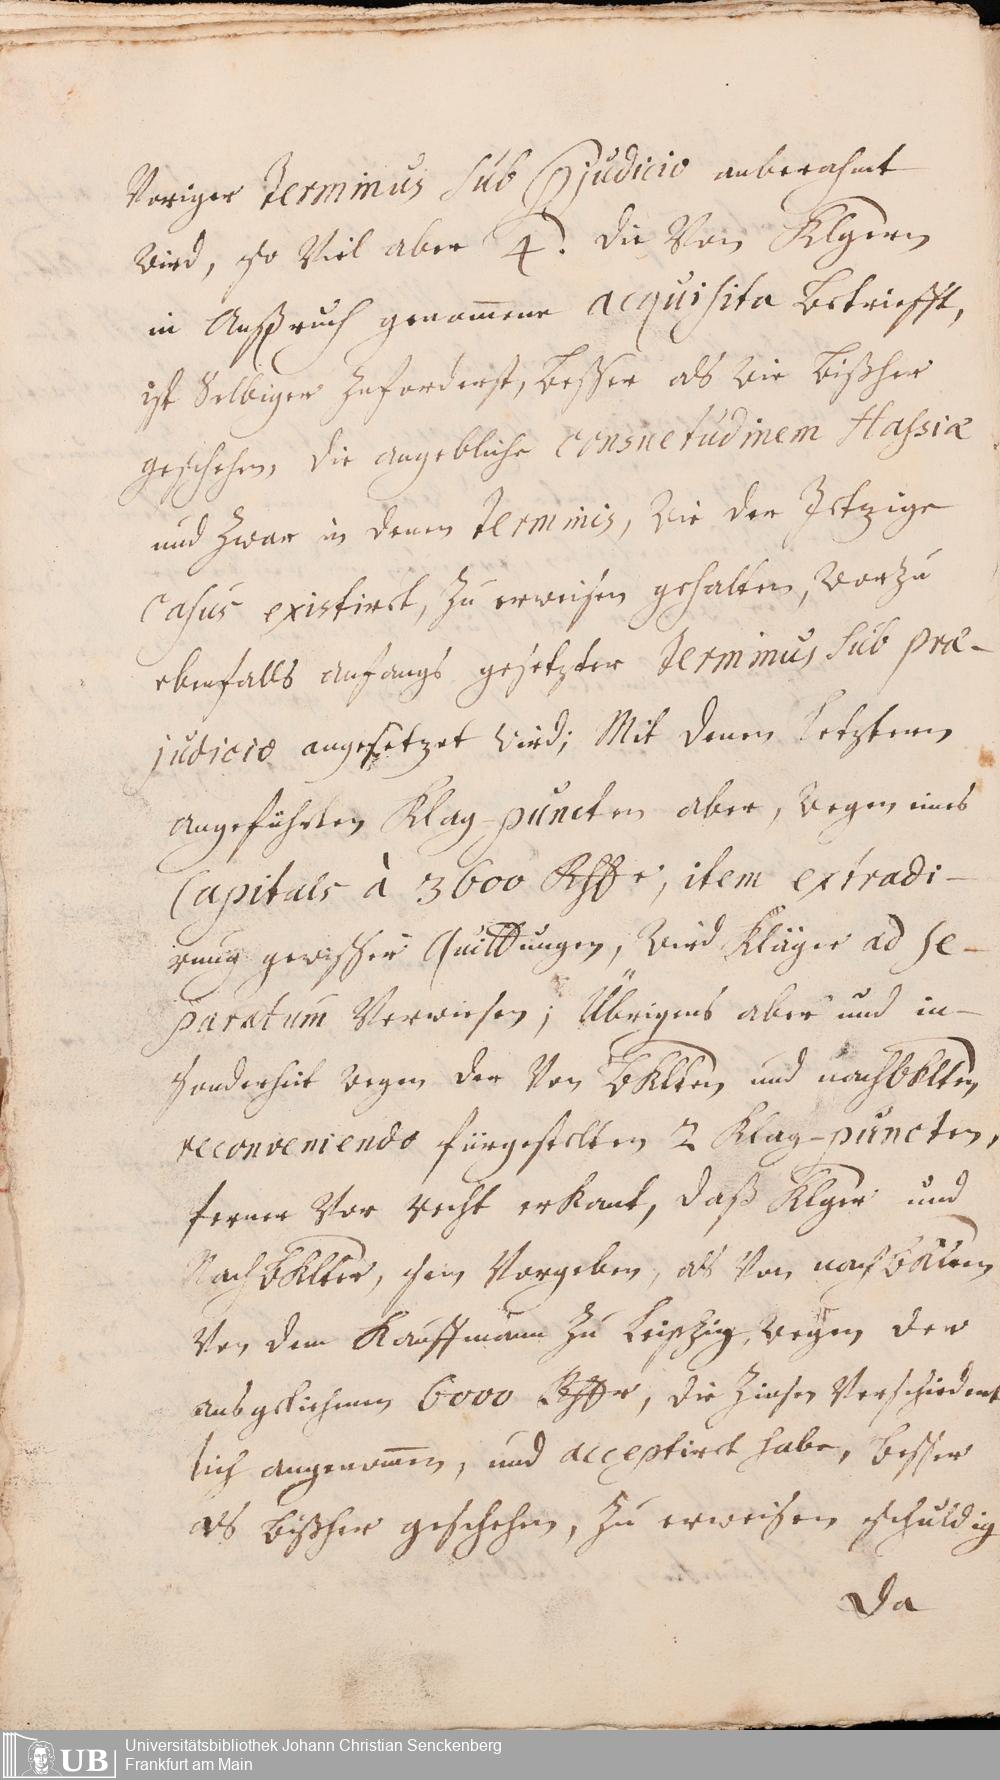 Voriger Terminus sub Pjudicio anberahmt
wird, so viel aber 4. die von Klgern
in Anspruch genom̅ene acquisita betriefft,
ist Selbiger zuforderst, besser als wie bißher
geschehen, die angebliche consuetudinem Hassiæ
und zwar in denen Terminis, wie der Jetzige
Casus existirt, zu erweisen gehalten, worzu
ebenfalls anfangs gesetzter Terminus sub præ-
judicio angesetzet wird; Mit denen letztern
angeführten Klag-puncten aber, wegen eines
Capitals à 3600 Rthlr, item extradi-
rung gewisser Quittungen, wird Kläger ad se-
paratum verwiesen; Übrigens aber und in-
sonderheit wegen der von Bklten und nachbklten
reconveniendo fürgestelten 2 Klag-puncten,
ferner vor recht erkant, daß Klger und
NachBklter, sein Vorgeben, als von nachbklten
von dem Kauffmann zu Leipzig, wegen der
ausgeliehenen 6000 Rthlr, die Zinsen verschiedent
lich angenom̅en, und acceptirt habe, besser
als bißher geschehen, zu erweisen schuldig
Da
UB Universitätsbibliothek Johann Christian Senckenberg
Frankfurt am Main